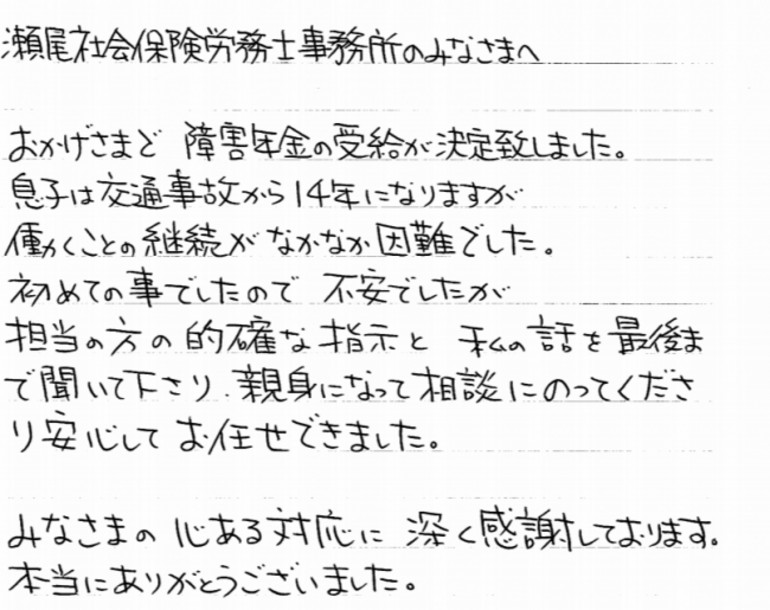 瀬尾社会保険労務士事務所のみなさまへ
おかげさまで 障害年金の受給が決定致しました。
息子は交通事故から14年になりますが
働くことの継続がなかなか困難でした。
初めての事でしたので 不安でしたが
担当の方の的確な指示と 私の話を最後ま
で聞いて下さり、親身になって相談にのってくださ
り安心してお任せできました。
みなさまの心ある対応に 深く感謝しております。
本当にありがとうございました。